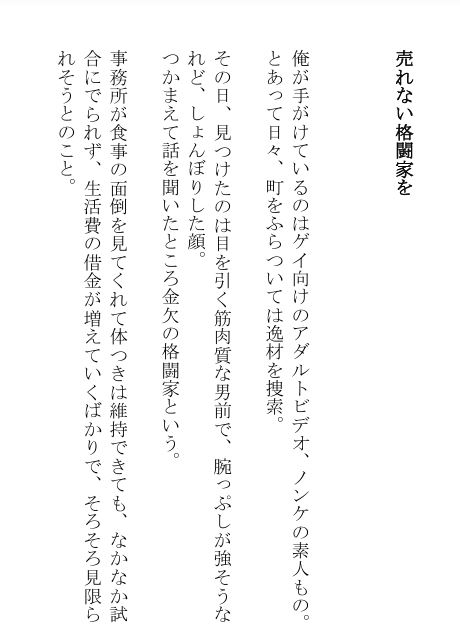 売れない格闘家を
俺が手がけているのはゲイ向けのアダルトビデオ、ノンケの素人もの。
とあって日々、町をふらついては逸材を捜索。
その日、見つけたのは目を引く筋肉質な男前で、腕っぷしが強そうな
れど、しょんぼりした顔。
つかまえて話を聞いたところ金欠の格闘家という。
事務所が食事の面倒を見てくれて体つきは維持できても、なかなか試
合にでられず、生活費の借金が増えていくばかりで、そろそろ見限ら
れそうとのこと。